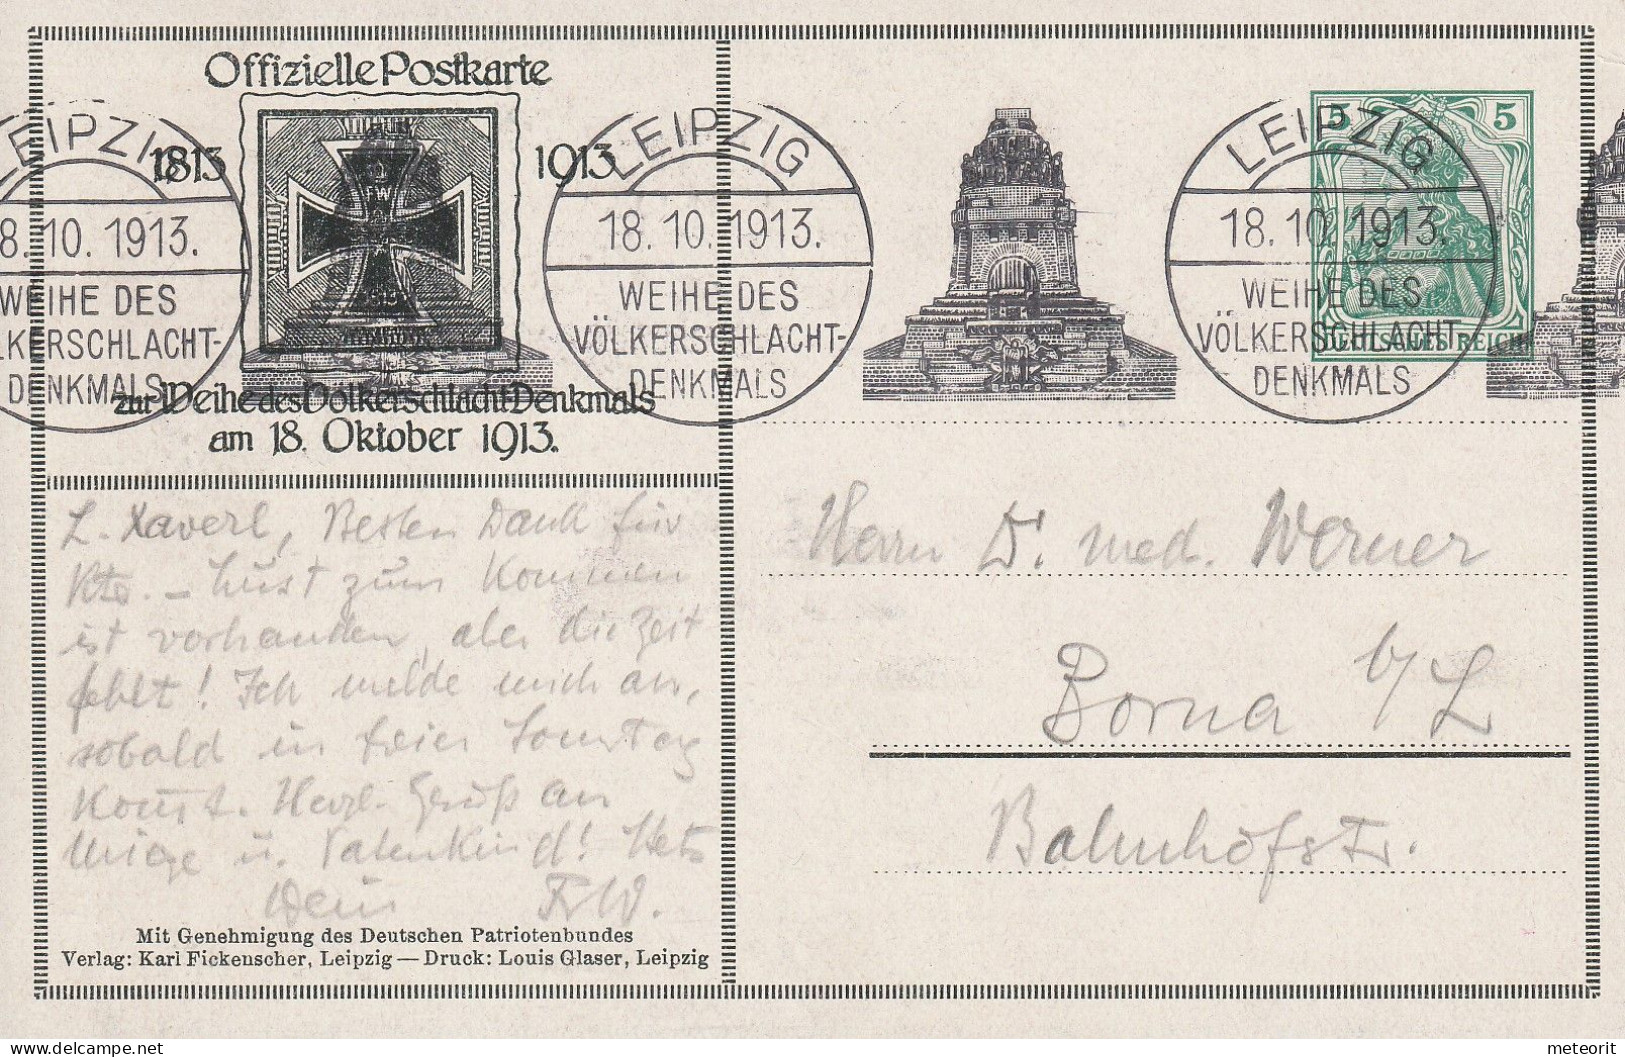 Offizielle Postkarte
1813
1913
zur Weihe des Völkerschlacht-Denkmals
am 18. Oktober 1913.
LEIPZIG
8. 10. 1913.
WEIHE DES
LKERSCHLACHT-
DENKMALS
LEIPZIG
18. 10. 1913.
WEIHE DES
VÖLKERSCHLACHT-
DENKMALS
LEIPZIG
18. 10. 1913.
WEIHE DES
VÖLKERSCHLACHT-
DENKMALS
5 5
DEUTSCHES REICH
L. Xaverl, Besten Dank für
Kte. – Lust zum Kommen
ist vorhanden, aber die Zeit
fehlt! Ich melde mich an,
sobald ein freier Sonntag
kommt. Herzl. Gruß an
u. Patenkind! Stets
Dein FrW.
Mit Genehmigung des Deutschen Patriotenbundes
Verlag: Karl Fickenscher, Leipzig — Druck: Louis Glaser, Leipzig
Herrn Dr. med. Werner
Borna b/L
Bahnhofstr.
www.delcampe.net
meteorit